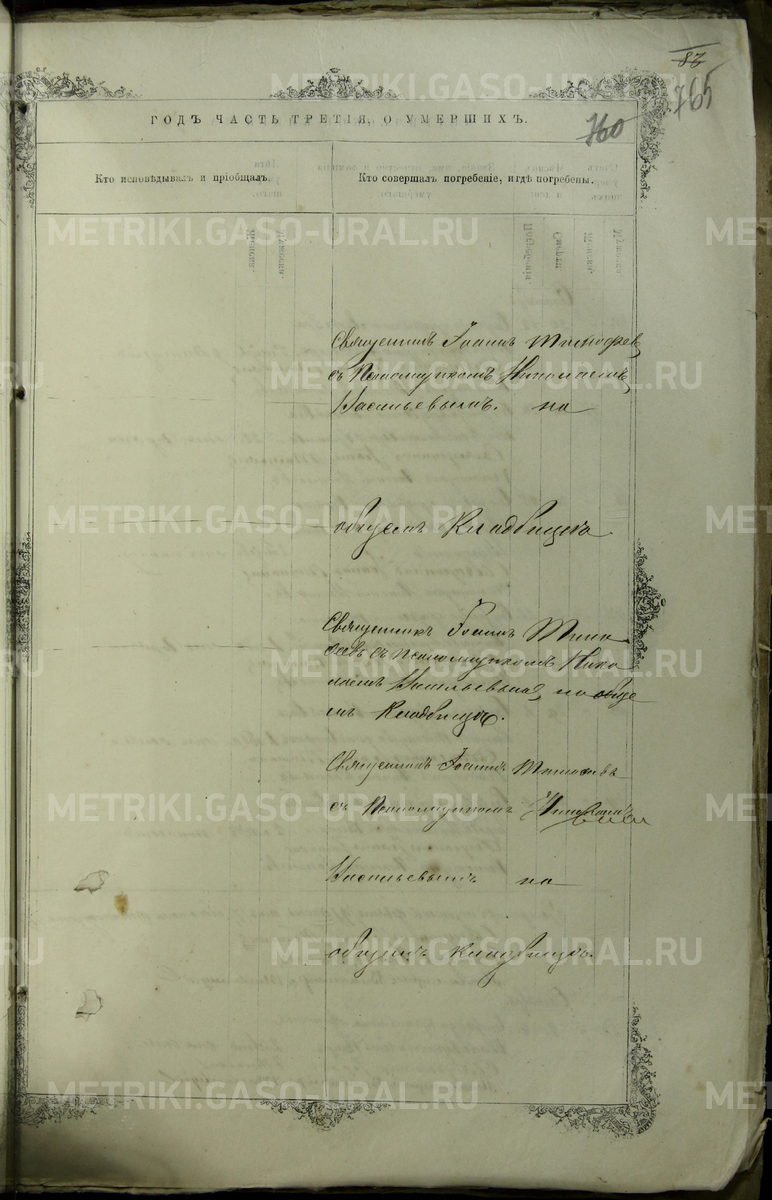 83
765
760
ГОДЪ ЧАСТЬ ТРЕТІЯ, О УМЕРШИХЪ.
Кто исповѣдывалъ и пріобщалъ.
Кто совершалъ погребеніе, и гдѣ погребены.
Священникъ Іоаннъ Тимофеев
съ Псаломщикомъ Николаемъ
Васильевымъ. на
общемъ Кладбищѣ.
Священникъ Іоаннъ Тимо
феевъ съ Псаломщикомъ Нико
лаемъ Васильевымъ, на обще
мъ Кладбищѣ.
Священникъ Іоаннъ
съ Псаломщикомъ
Васильевымъ на
общемъ кладбищѣ.
METRIKI.GASO-URAL.RU